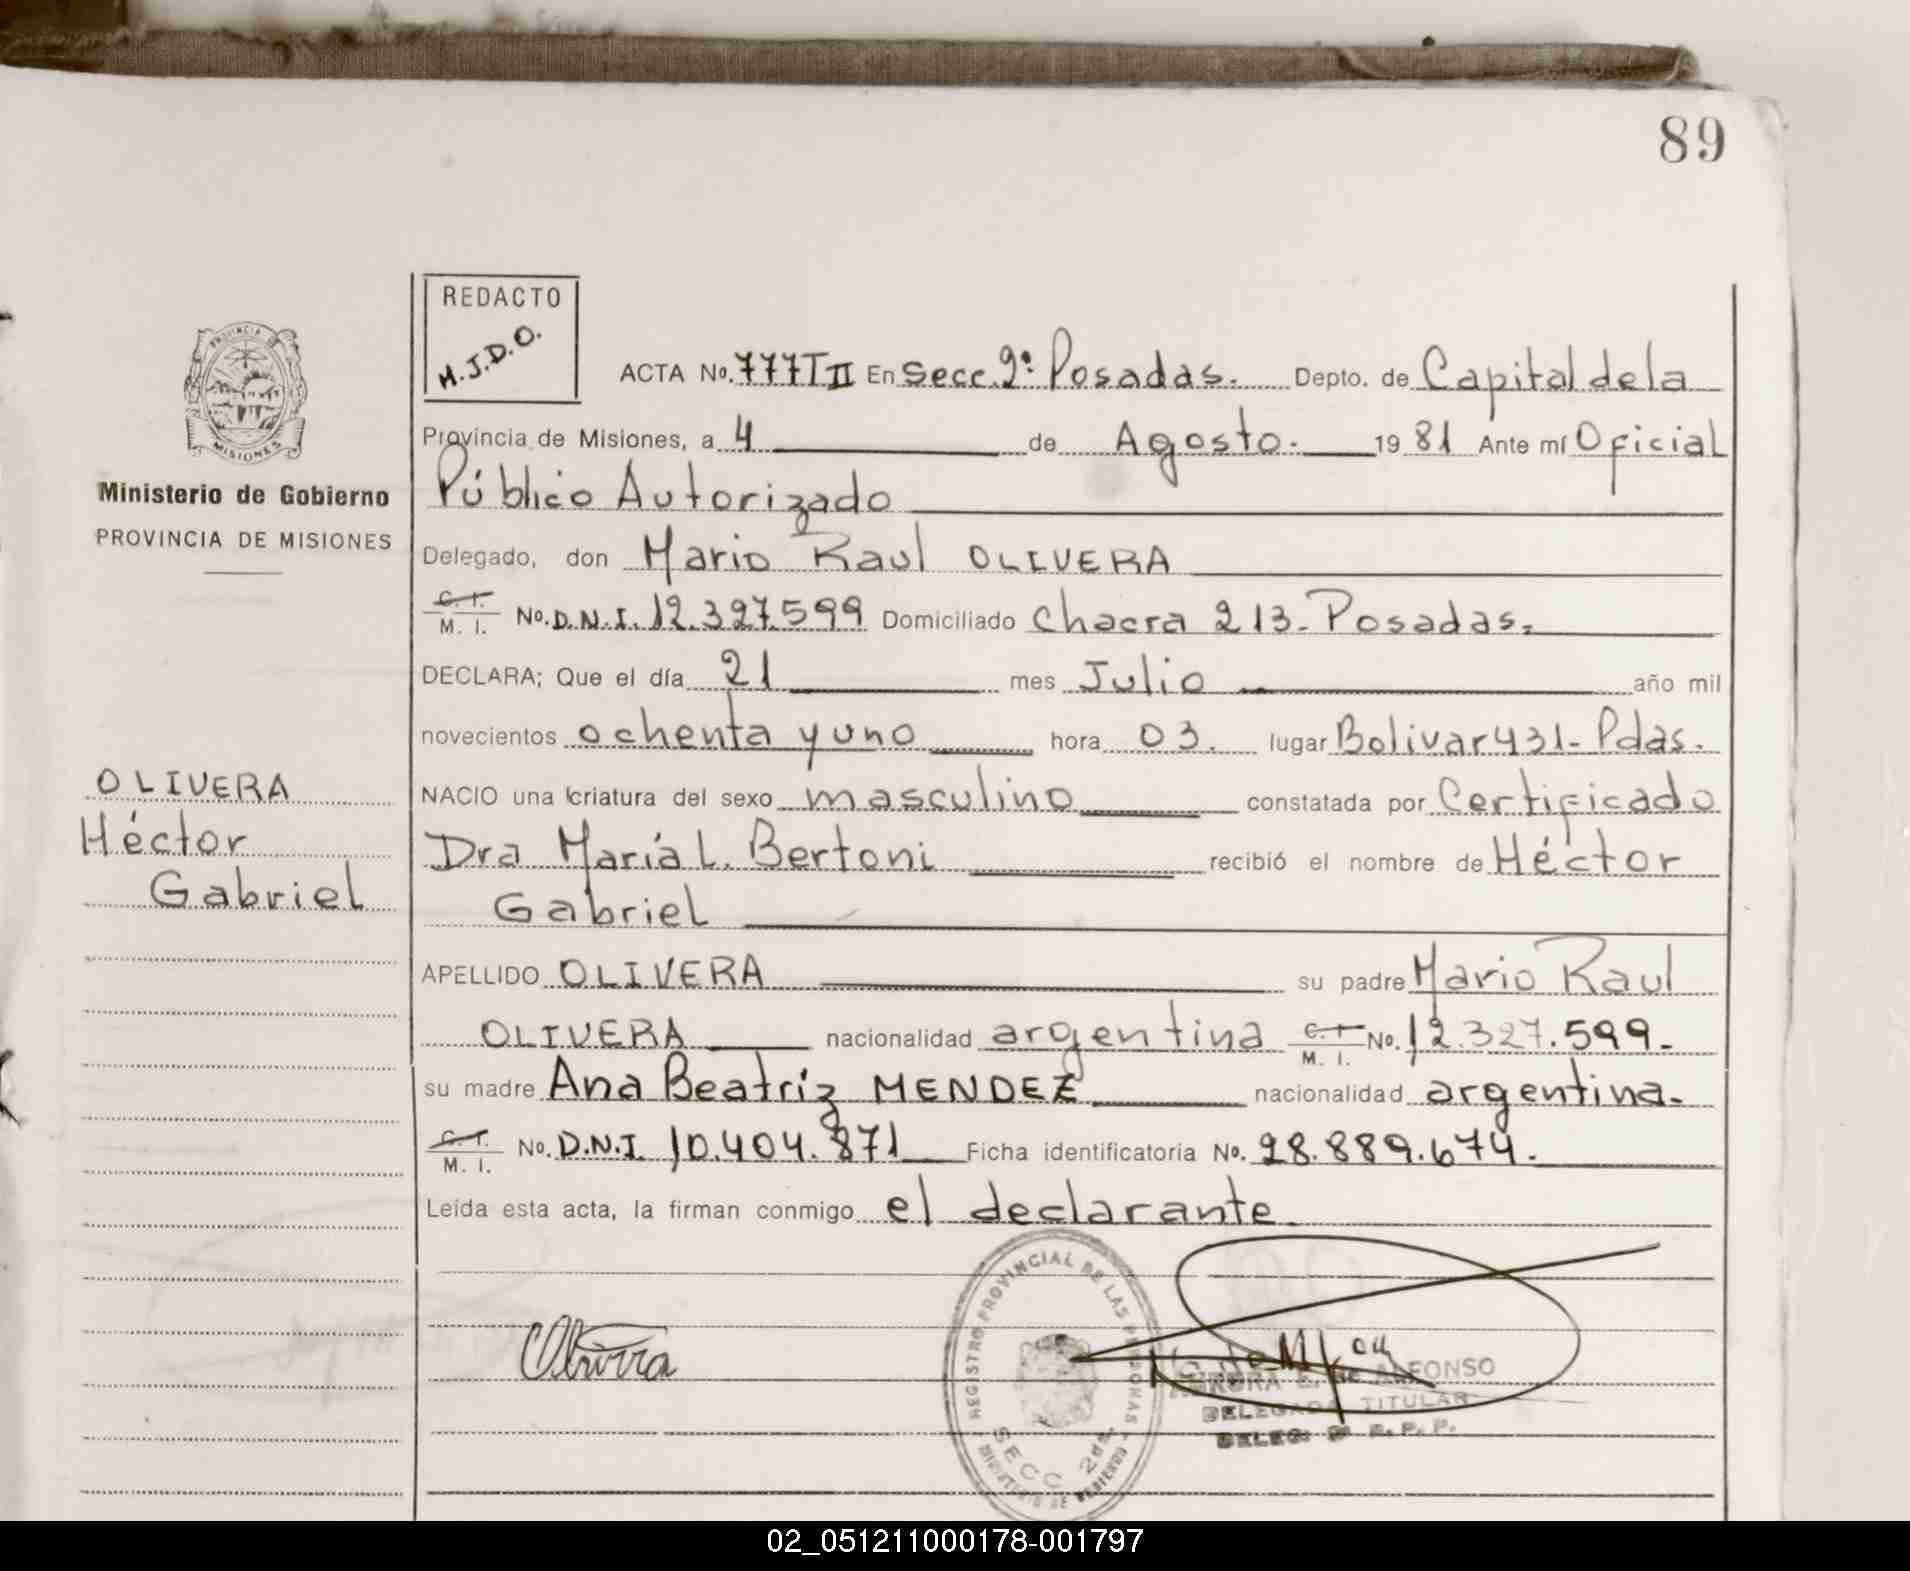 89
REDACTO
H.J.D.O.
ACTA No. 777 T II En Secc. 2ª Posadas. Depto. de Capital de la
Provincia de Misiones, a 4 de Agosto. 1981 Ante mí Oficial
Público Autorizado
Delegado, don Mario Raul OLIVERA
C. I. M. I. No. D.N.I. 12.327.599 Domiciliado Chacra 213 - Posadas.
DECLARA; Que el día 21 mes Julio año mil
novecientos ochenta y uno hora 03. lugar Bolivar 431 - Pdas.
NACIO una criatura del sexo masculino constatada por Certificado
Dra María L. Bertoni recibió el nombre de Héctor
Gabriel
APELLIDO OLIVERA su padre Mario Raul
OLIVERA nacionalidad argentina C. I. M. I. No. 12.327.599-
su madre Ana Beatriz MENDEZ nacionalidad argentina-
C. I. M. I. No. D.N.I. 10.404.871 Ficha identificatoria No. 28.889.674.
Leída esta acta, la firman conmigo el declarante
PROVINCIA DE
MISIONES
Ministerio de Gobierno
PROVINCIA DE MISIONES
OLIVERA
Héctor
Gabriel
Olivera
REGISTRO PROVINCIAL DE LAS PERSONAS
SECC 2da.
MINISTERIO DE GOBIERNO
E. de ALFONSO
DELEGADA TITULAR
DELEG. R. P. P.
02_051211000178-001797